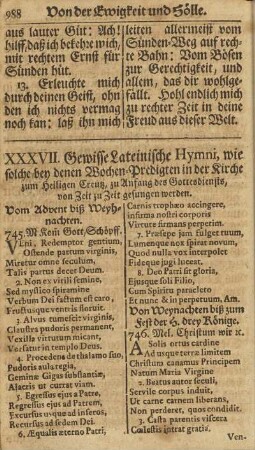 988 Von der Ewigkeit und Hölle.
aus lauter Güt: Ach
hilff, daß ich bekehre mich,
mit rechtem Ernst für
Sünden hüt.
13. Erleuchte mich
durch deinen Geist, ohn
den ich nichts vermag
noch kan: laß ihn mich
leiten allermeist vom
Sünden-Weg auf rech-
te Bahn: Vom Bösen
zur Gerechtigkeit, und
allem, das dir wohlge-
fällt. Hohl endlich mich
zu rechter Zeit in deine
Freud aus dieser Welt.
XXXVII. Gewisse Lateinische Hymni, wie
solche bey denen Wochen-Predigten in der Kirche
zum Heiligen Creutz, zu Anfang des Gottesdiensts,
von Zeit zu Zeit gesungen werden.
Vom Advent biß Weyh-
nachten.
745. M. Kom Gott Schöpff.
VEni, Redemptor gentium,
Ostende partum virginis,
Miretur omne seculum,
Talis partus decet Deum.
2. Non ex virili semine,
Sed mystico spiramine
Verbum Dei factum est caro,
Fructusque ventris floruit.
3. Alvus tumescit virginis,
Claustra pudoris permanent,
Vexilla virtutum micant,
Versatur in templo Deus.
4. Procedens de thalamo suo,
Pudoris aula regia,
Geminæ Gigas substantiæ,
Alacris ut currat viam.
5. Egressus ejus a Patre,
Regressus ejus ad Patrem,
Excursus usque ad inferos,
Recursus ad sedem Dei.
6. Æqualis æterno Patri,
Carnis trophæo accingere,
infirma nostri corporis
Virtute firmans perpetim.
7. Præsepe jam fulget tuum,
Lumenque nox spirat novum,
Quod nulla vox interpolet
Fideque jugi luceat.
8. Deo Patri sit gloria,
Ejusque soli Filio,
Cum Spiritu paracleto
Et nunc & in perpetuum, Am.
Von Weynachten biß zum
Fest der H. drey Könige.
746. Mel. Christum wir ꝛc.
A Solis ortus cardine
Ad usque terra limitem
Christum canamus Principem
Natum Maria Virgine
2. Beatus autor seculi,
Servile corpus induit,
Ut carne carnem liberans,
Non perderet, quos condidit.
3. Casta parentis viscera
Cœlestis intrat gratia.
Ven-